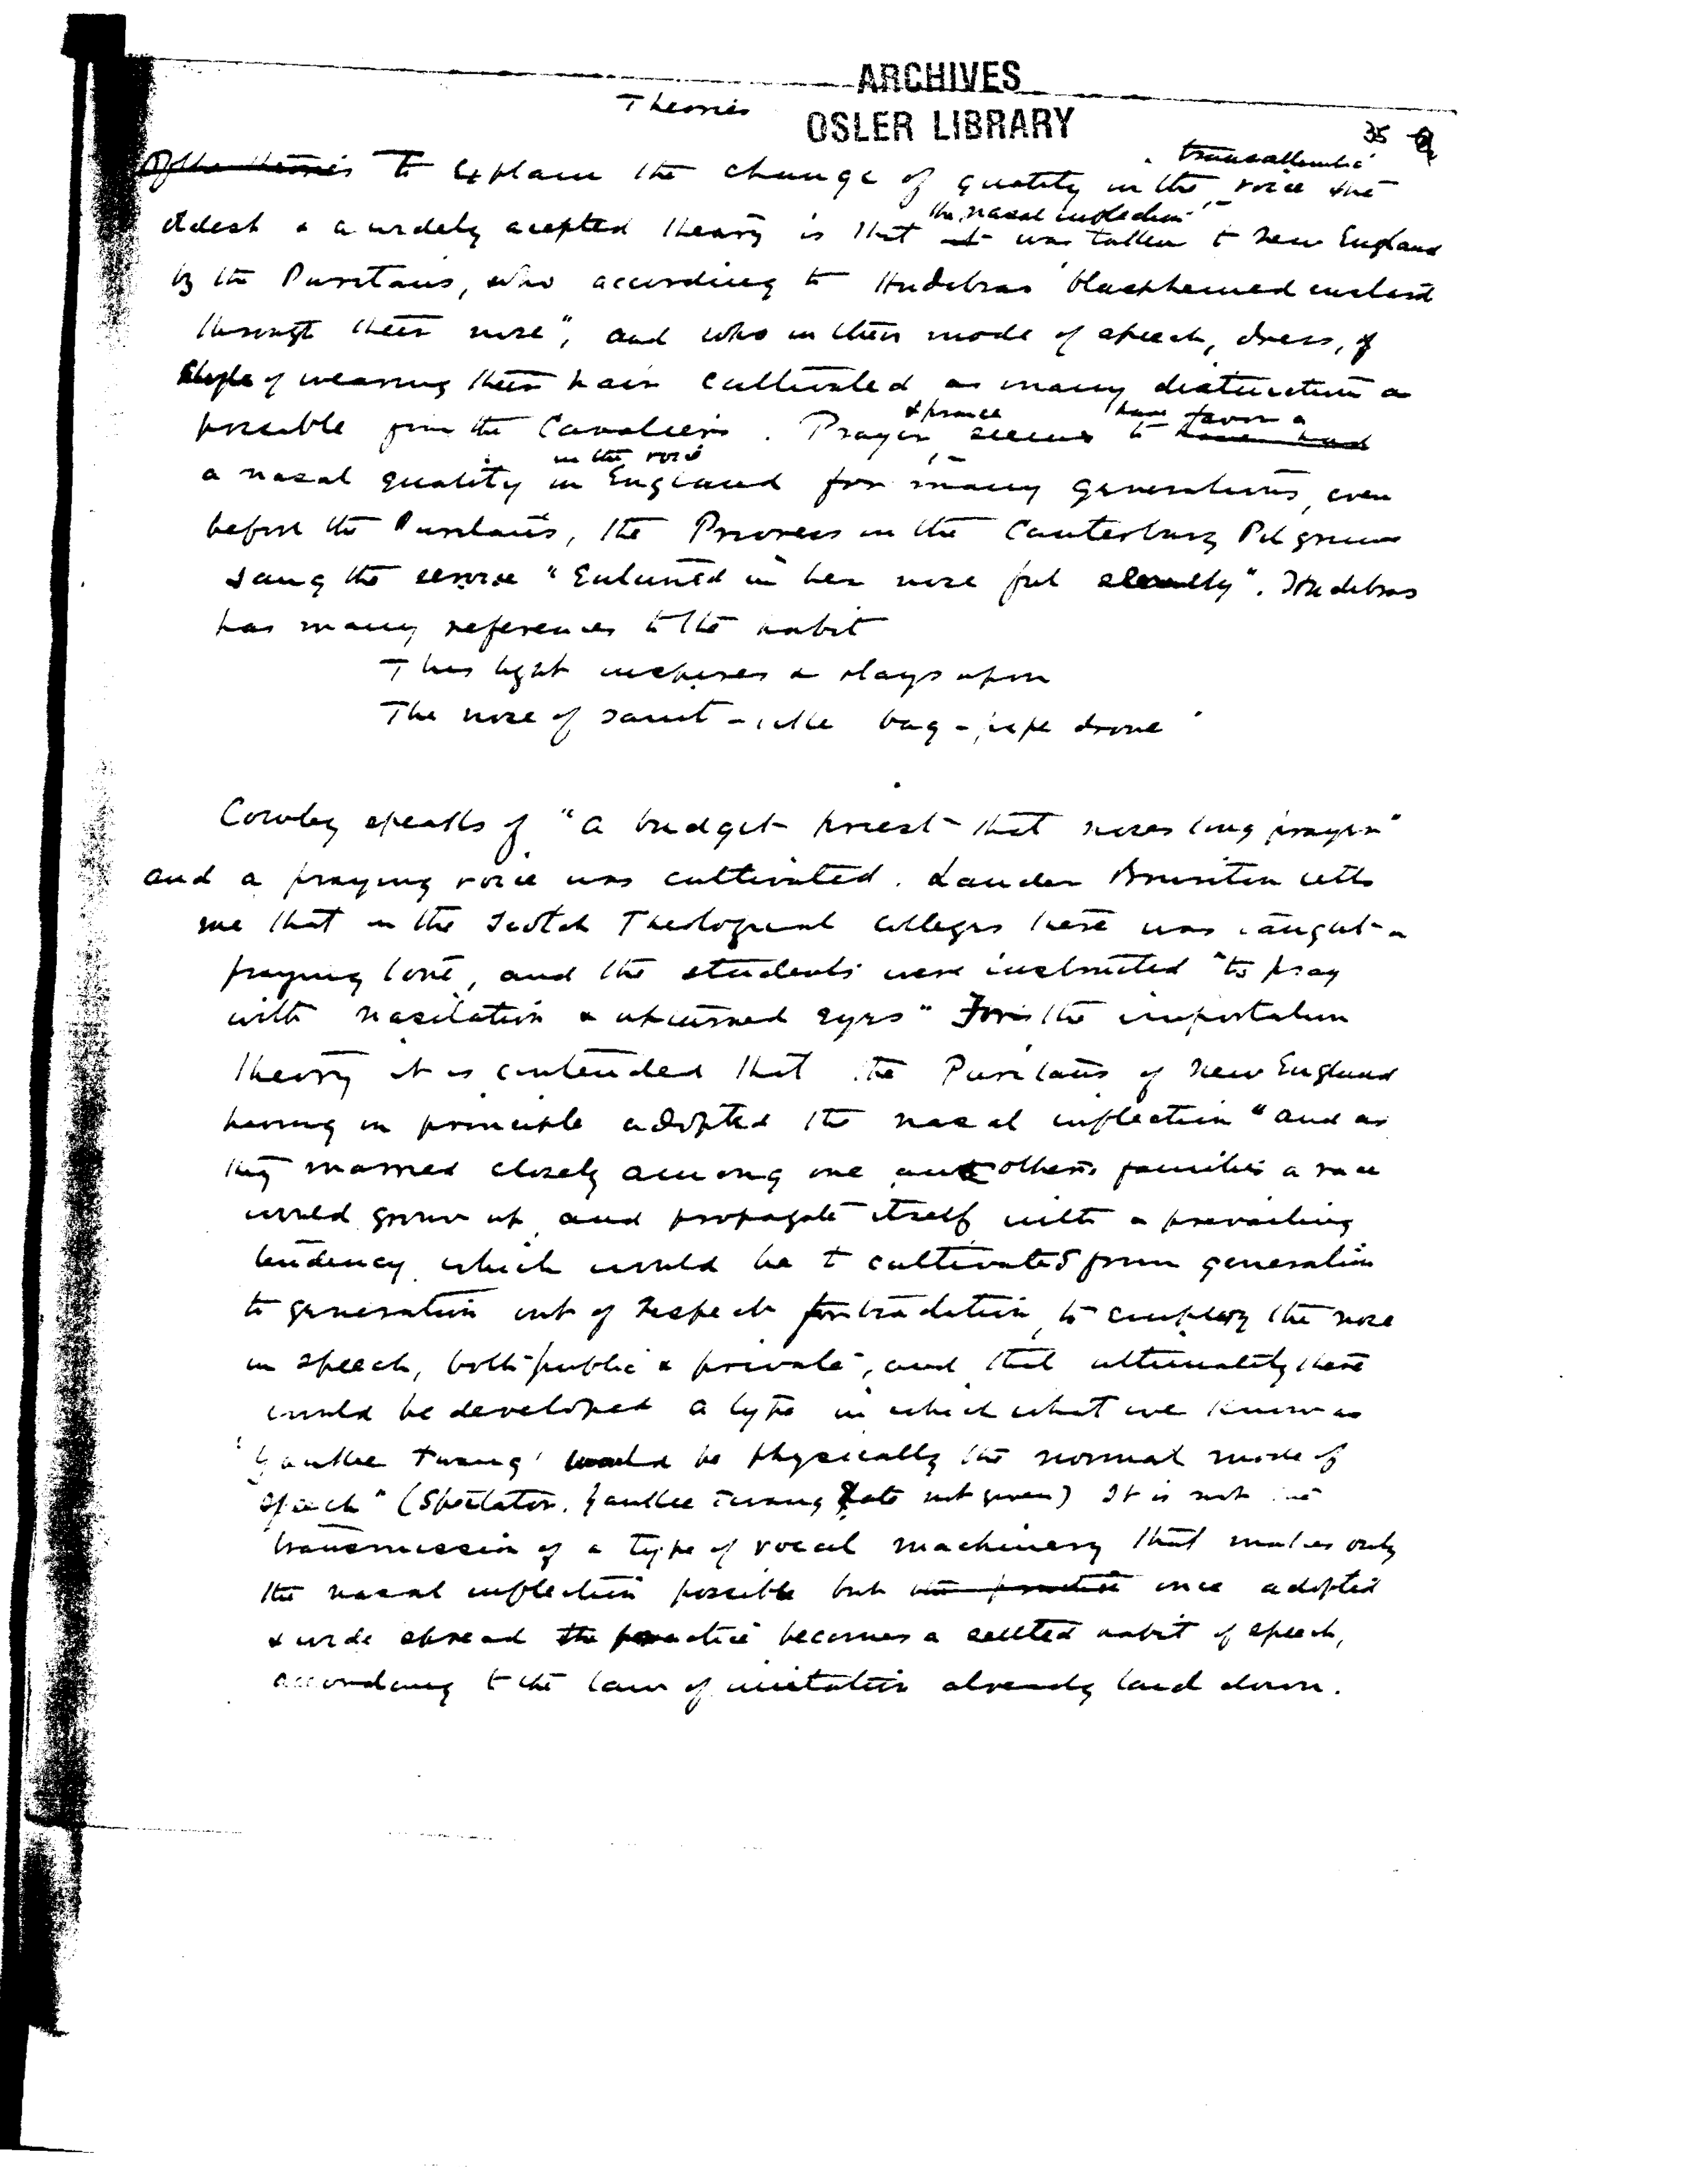 ARCHIVES
OSLER LIBRARY
Theories
35
Of the theories To explain the change of quality in the transatlantic voice the
oldest & a widely accepted theory is that it the nasal inflection was taken to New England
by the Puritans, who according to Hudibras "blasphemed
through their nose", and who in their mode of speech, dress, &
style of wearing their hair cultivated as many distinctions as
possible from the Cavaliers. Prayer & praise seems to have favor a have had
a nasal quality in the voice in England for many generations, even
before the Puritans, the Prioress in the Canterbury Pilgrims
sang the service "Entuned in her nose ful semely". Hudibras
has many references to the habit
This light inspires & plays upon
The nose of saint-like bag-pipe drone"
Cowley speaks of "a budget priest that noses long prayers"
and a praying voice was cultivated. Lauder Brunton tells
me that in the Scotch Theological Colleges there was taught a
praying tone, and the students were instructed "to pray
with nasilation & upturned eyes" For the importation
theory it is contended that the Puritans of New England
having on principle adopted the nasal inflection "and as
they married closely among one another's families a race
would grow up and propagate itself with a prevailing
tendency which would be cultivated from generation
to generation out of respect for tradition, to employ the nose
in speech, both public & private", and that ultimately there
would be developed a type in which what we know as
'Yankee twang' would be physically the normal mode of
speech" (Spectator. Yankee Twang date not given) It is not the
transmission of a type of vocal machinery that makes only
the nasal inflection possible but the practice once adopted
& wide spread the practice becomes a settled habit of speech,
according to the law of imitation already laid down.